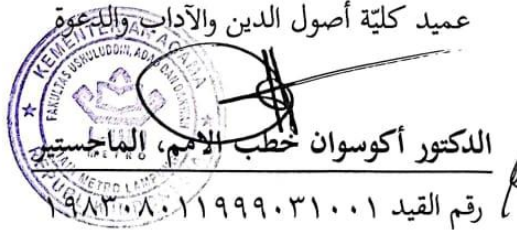 عميد كليّة أصول الدين والآداب والدعوة
KEMENTERIAN AGAMA
FAKULTAS USHULUDDIN, ADAB DAN DAKWAH
METRO
الدكتور أكوسوان خطب الامم، الماجستير
رقم القيد ١٩٨٣٠٨٠١١٩٩٩٠٣١٠٠١